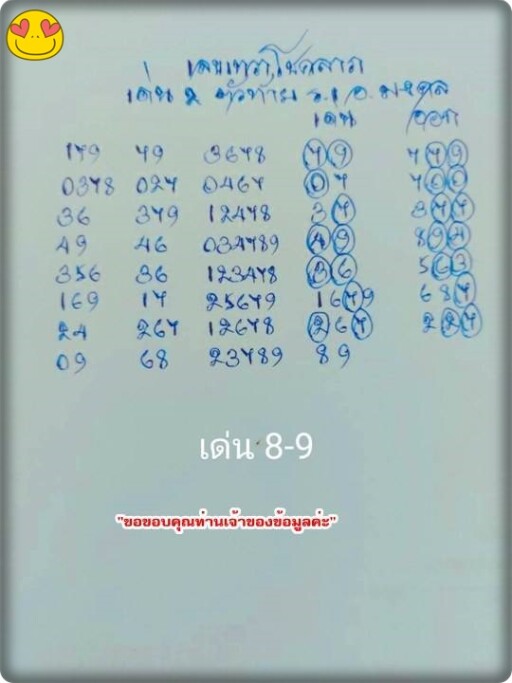 เด่น 2 ตัวท้าย
เด่น ออก
179 79 3678 79 779
0378 027 0467 07 700
36 379 12478 37 377
49 46 034789 49 894
356 36 123478 36 563
169 17 25679 1679 687
24 267 12678 267 227
09 68 23789 89
เด่น 8-9
"ขอขอบคุณท่านเจ้าของข้อมูลค่ะ"